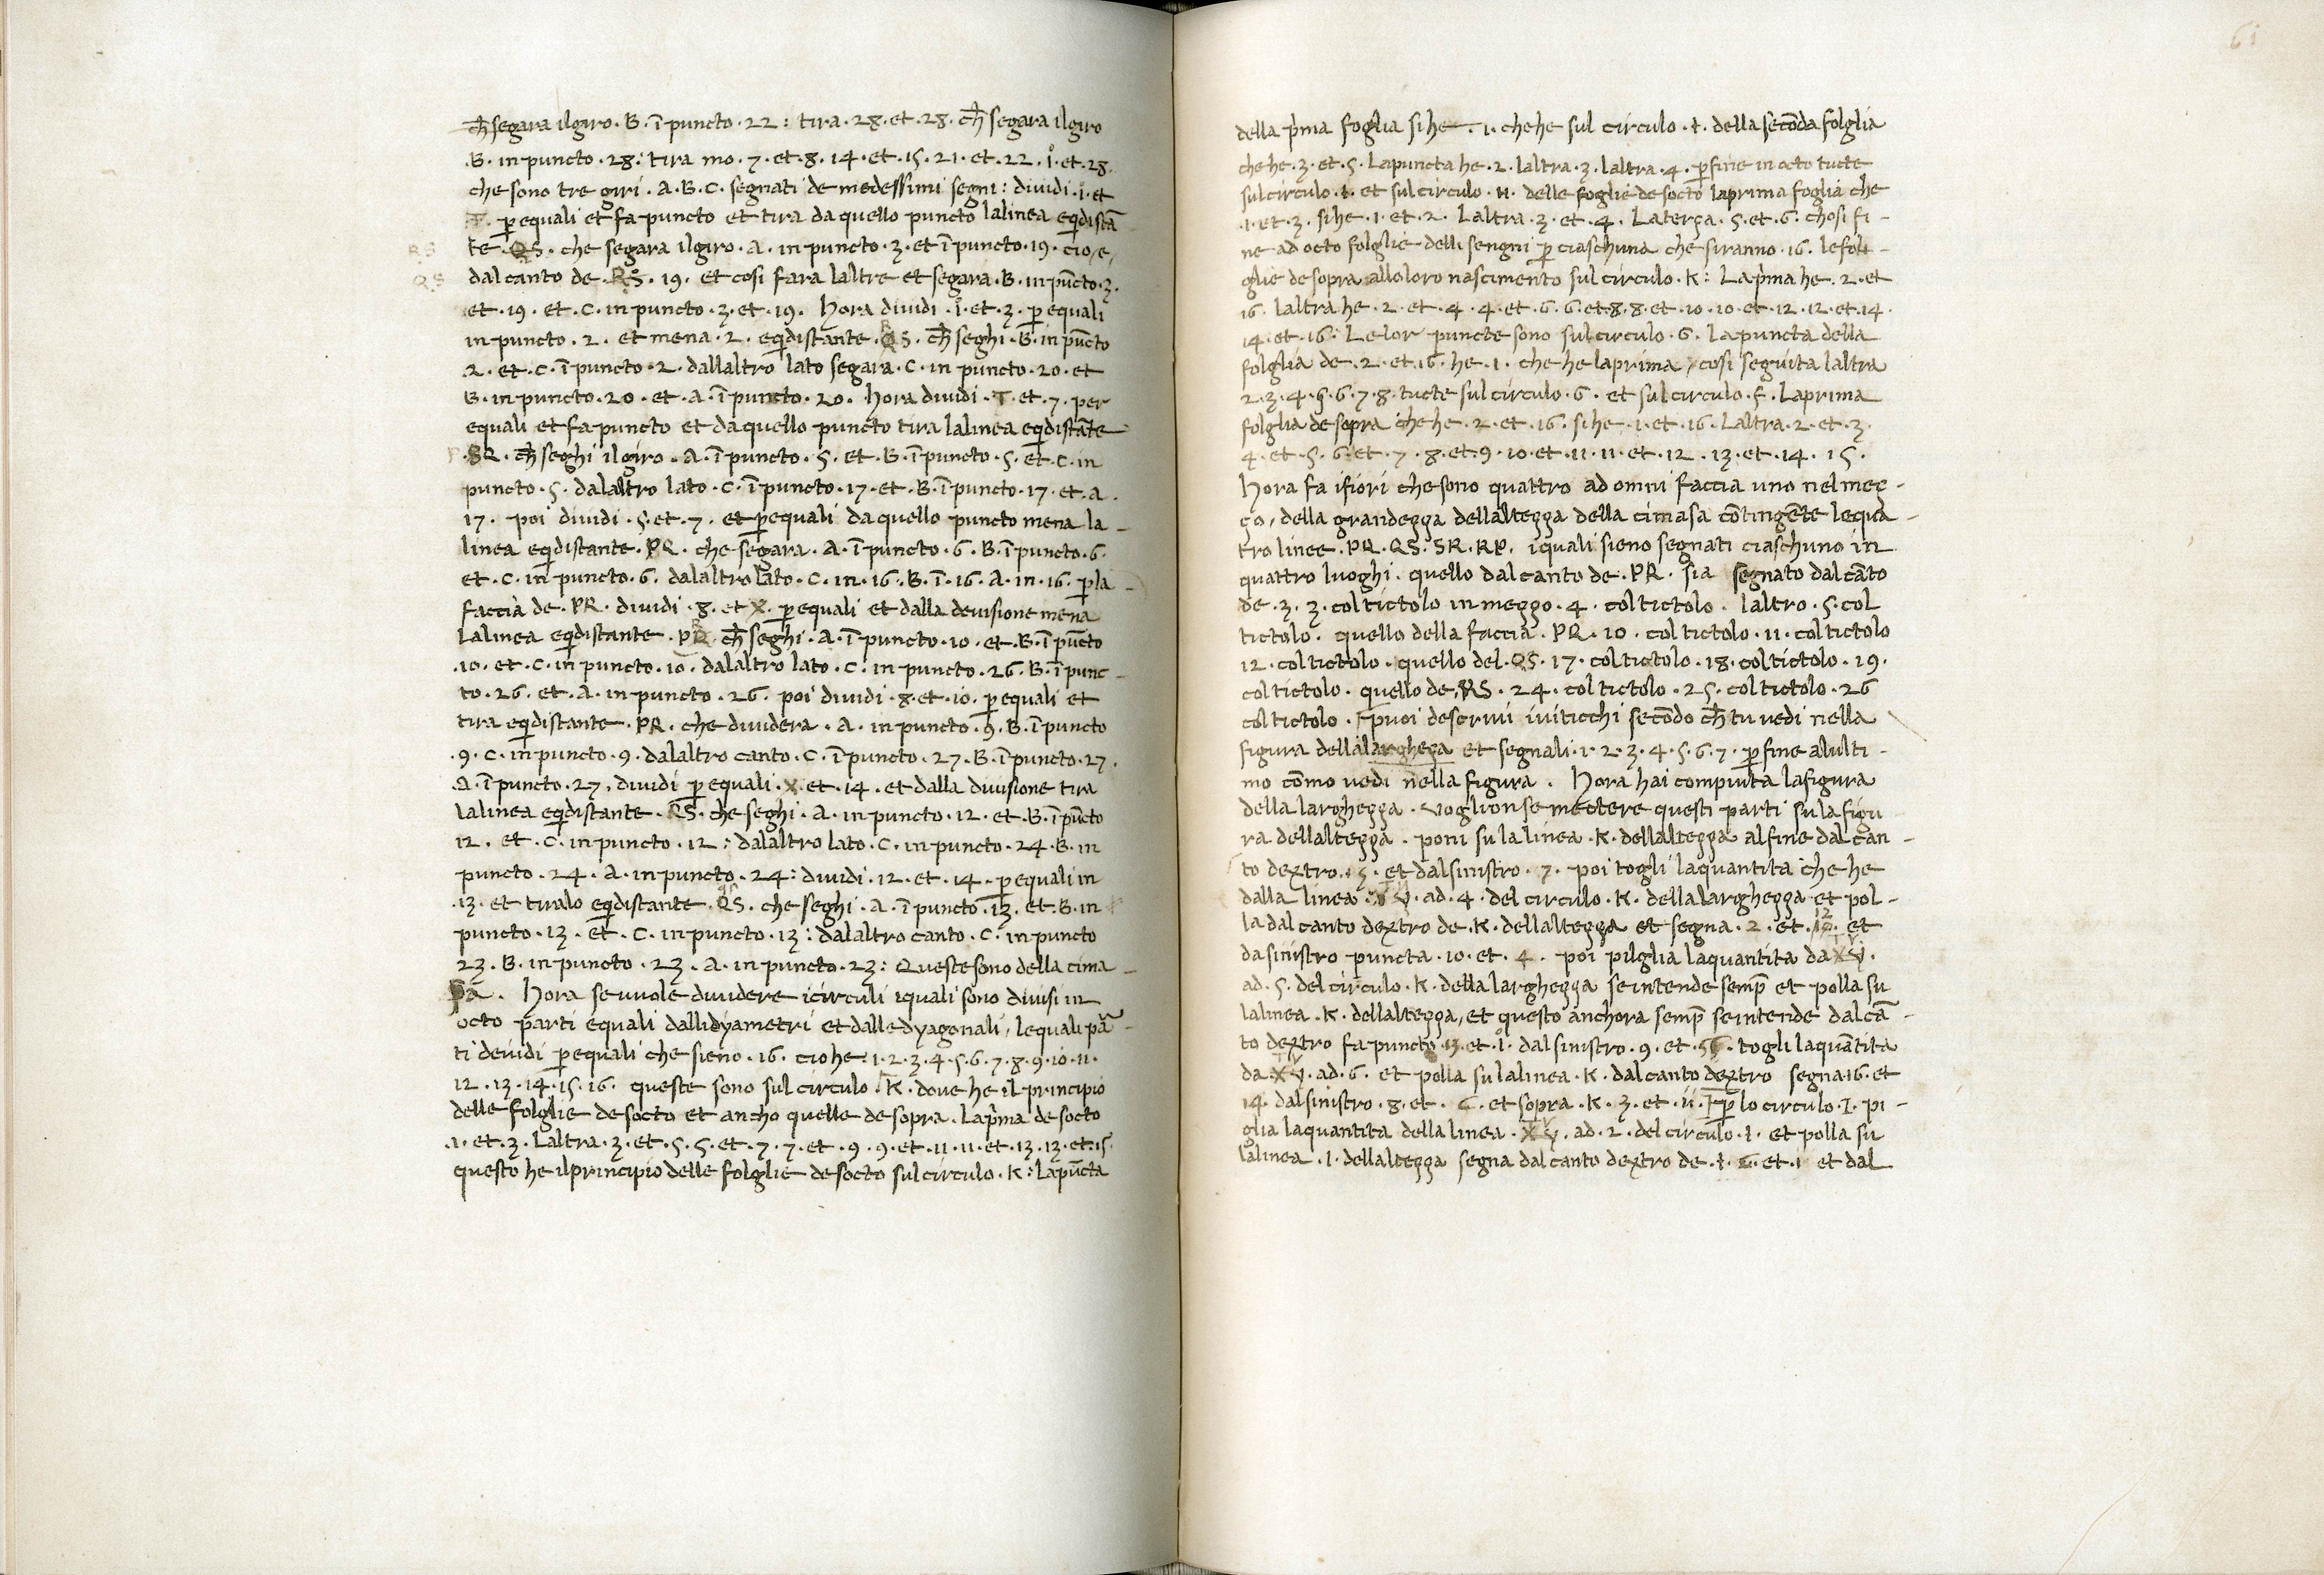 ch̄ segara ilgiro · B · ī puncto · 22 : tira · 28 · et · 28 · ch̄ segara ilgiro
· B · in puncto · 28 : tira mo · 7 · et · 8 · 14 · et · 15 · 21 · et · 22 · i · et · 28 ·
che sono tre giri · A · B · C · segnati de medessimi segni : dividi · i · et
T · p̄ equali et fa puncto et tira da quello puncto lalinea eqidistā
RS
te · QS · che segara ilgiro · A · in puncto · 3 · et ī puncto · 19 · cio e,
QS
dal canto de · RS · 19 · et cosi fara laltre et segara · B · in pūcto · 3 ·
et · 19 · et · C · in puncto · 3 · et · 19 · hora dividi · i · et · 3 · p̄ equali
in puncto · 2 · et mena · 2 · eqidistante · QS · ch̄ seghi · B · in pūcto
2 · et · C · ī puncto · 2 · dallaltro lato segara · C · in puncto · 20 · et
B · in puncto · 20 · et · A · ī puncto · 20 · hora dividi · T · et · 7 · per
equali et fa puncto et da quello puncto tira lalinea eqidistāte
· SQ · ch̄ seghi ilgiro · A · ī puncto · 5 · et · B · ī puncto · 5 · et · C · in
puncto · 5 · dalaltro lato · C · ī puncto · 17 · et · B · ī puncto · 17 · et · a ·
17 · poi dividi · 5 · et · 7 · et p̄ equali da quello puncto mena la -
linea eqidistante · PQ · che segara · A · ī puncto · 6 · B · ī puncto · 6 ·
et · C · in puncto · 6 · dalaltro lato · C · in · 16 · B · ī · 16 · A · in · 16 · p̄ la -
faccia de · PR · dividi · 8 · et X · p̄ equali et dalla devisione mena
lalinea eqidistante · PQ · ch̄ seghi · A · ī puncto · 10 · et · B · ī pūcto
· 10 · et · C · in puncto · 10 · dalaltro lato · C · in puncto · 26 · B · ī punc -
to · 26 · et · A · in puncto · 26 · poi dividi · 8 · et · 10 · p̄ equali et
tira eqidistante · PR · che dividera · A · in puncto · 9 · B · ī puncto
· 9 · C · in puncto · 9 · dalaltro canto · C · ī puncto · 27 · B · ī puncto · 27 ·
A · ī puncto · 27 , dividi p̄ equali · X · et · 14 · et dalla divisione tira
lalinea eqidistante · QS · che seghi · A · in puncto · 12 · et · B · ī pūcto
12 · et · C · in puncto · 12 : dalaltro lato · C · in puncto · 24 · B · in
puncto · 24 · A · in puncto · 24 : dividi · 12 · et · 14 · p̄ equali in
· 13 · et tiralo eqidistante · QS · che seghi · A · ī puncto · 13 · et · B · in
puncto · 13 · et · C · in puncto · 13 : dalaltro canto · C · in puncto
23 · B · in puncto · 23 · A · in puncto · 23 : Queste sono della cima -
sa · hora se vuole dividere i circuli iquali sono divisi in
octo parti equali dallidyametri et dalle dyagonali, lequali pā -
ti devidi p̄ equali che sieno · 16 · cio he · 1 · 2 · 3 · 4 · 5 · 6 · 7 · 8 · 9 · 10 · 11 ·
12 · 13 · 14 · 15 · 16 · queste sono sul circulo · K · dove he il principio
delle folglie de socto et ancho quelle de sopra · la p̄ma de socto
· 1 · et · 3 · laltra · 3 · et · 5 · 5 · et · 7 · 7 · et · 9 · 9 · et · 11 · 11 · et · 13 · 13 · et · 15 ·
questo he ilprincipio delle folglie de socto sul circulo · K : la pūcta
61
della p̄ma foglia si he · 1 · che he sul circulo · I · della secōda folglia
che he · 3 · et · 5 · la puncta he · 2 · laltra · 3 · laltra · 4 · p̄ fine in octo tucte
sul circulo · I · et sul circulo · H · delle foglie de socto la prima foglia che
· 1 · et · 3 · si he · 1 · et · 2 · laltra · 3 · et · 4 · La terça · 5 · et · 6 · chosi fi -
ne ad octo folglie delli sengni p̄ ciaschuna che siranno · 16 · le fol -
glie de sopra alloloro nascimento sul circulo · K : La p̄ma he · 2 · et
16 · laltra he · 2 · et · 4 · 4 · et · 6 · 6 · et · 8 · 8 · et · 10 · 10 · et · 12 · 12 · et · 14 ·
14 · et · 16 · Le lor puncte sono sul circulo · G · la puncta della
folglia de · 2 · et · 16 · he · 1 · che he la prima, cosi seguita laltra
2 · 3 · 4 · 5 · 6 · 7 · 8 · tucte sul circulo · G · et sul circulo · F · La prima
folglia de sopra che he · 2 · et · 16 · si he · 1 · et · 16 · Laltra · 2 · et · 3 ·
4 · et · 5 · 6 · et · 7 · 8 · et · 9 · 10 · et · 11 · 11 · et · 12 · 13 · et · 14 · 15 ·
hora fa ifiori che sono quattro ad omni faccia uno nel meç -
ço, della grandezza dellaltezza della cimasa cōtingēte le qua -
tro linee · PQ · QS · SR · RP · iquali sieno segnati ciaschuno in
quattro luoghi · quello dal canto de · PR · sia segnato dal cāto
de · 3 · 3 · col tictolo in mezzo · 4 · col tictolo · laltro · 5 · col
tictolo · quello della faccia · PR · 10 · col tictolo · 11 · col tictolo
12 · col tictolo · quello del · QS · 17 · col tictolo · 18 · col tictolo · 19 ·
col tictolo · quello de, RS · 24 · col tictolo · 25 · col tictolo · 26
col tictolo · puoi descrivi iviticchi secōdo ch̄ tu vedi nella
figura della largheça et segnali · 1 · 2 · 3 · 4 · 5 · 6 · 7 · p̄ fine alulti -
mo cōmo vedi nella figura · Hora hai compiuta la figura
della larghezza · voglionse mectere questi parti su la figu
ra dellaltezza · poni su la linea · K · dellaltezza al fine dal can -
to dextro · 5 · et dal sinistro · 7 · poi togli la quantita che he
dalla linea · XY · ad · 4 · del circulo · K · della larghezza et pol -
la dal canto dextro de · K · dellaltezza et segna · 2 · et · 12 · et
da sinistro puncta · 10 · et · 4 · poi pilglia la quantita da XY ·
ad · 5 · del circulo · K · della larghezza se intende semp̄ et polla su
la linea · K · dellaltezza, et questo anchora semp̄ se intende dal cā -
to dextro fa puncto · 13 · et · 1 · dal sinistro · 9 · et · togli la quātita
da · XY · ad · 6 · et polla su la linea · K · dal canto dextro segna · 16 · et
14 · dal sinistro · 8 · et · 6 · et sopra · K · 3 · et · 11 · p̄ lo circulo · I · pi -
glia la quantita della linea · XY · ad · 2 · del circulo · I · et polla su
la linea · I · dellaltezza segna dal canto dextro de · I · 6 · et · 1 et dal